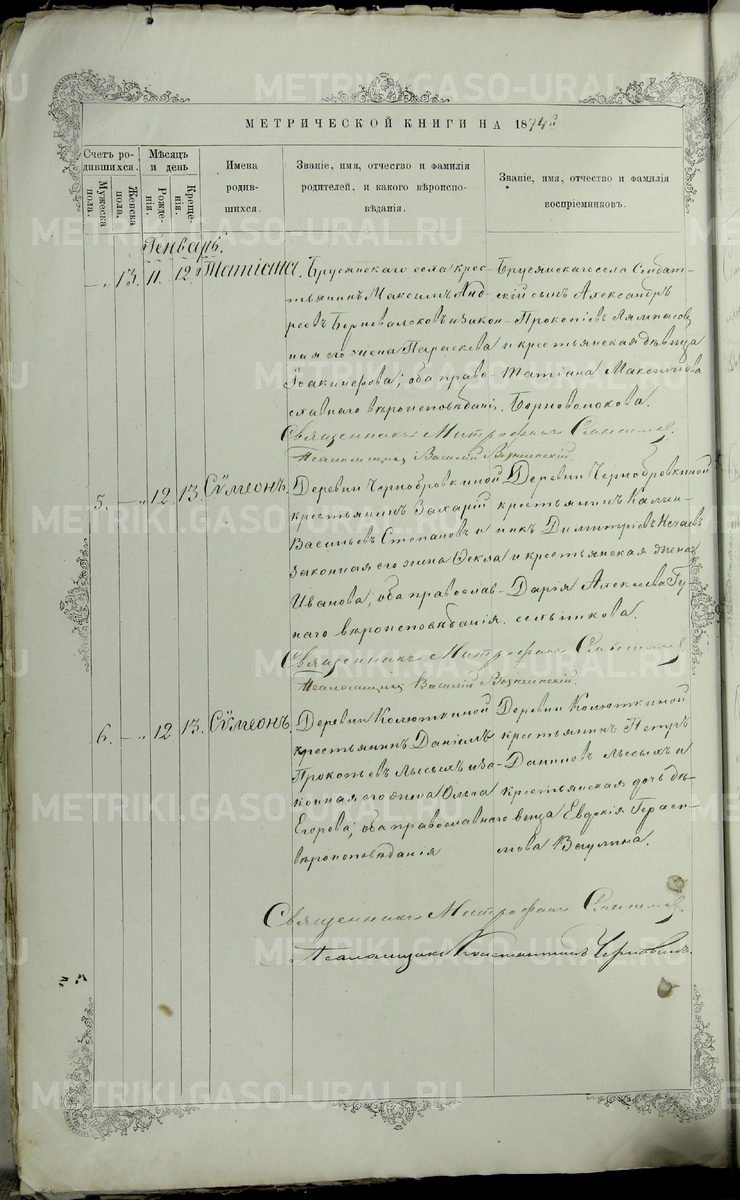 МЕТРИЧЕСКОЙ КНИГИ НА 1874
Счетъ родившихся.
Мужеска пола.
Женска пола.
Мѣсяцъ и день
Рожденія.
Крещенія.
Имена родившихся.
Званіе, имя, отчество и фамилія родителей, и какого вѣроисповѣданія.
Званіе, имя, отчество и фамилія воспріемниковъ.
Генварь.
13. 11. 12 Татіана.
Брусянскаго села крес-
тьянинъ Максимъ Анд-
реевъ Борноволоковъ и закон-
ная его жена Параскева
Іоакинфова; оба право-
славнаго вѣроисповѣданія.
Брусянскаго села Солдат-
скій сынъ Александръ
Прокопіевъ
и крестьянская дѣвица
Татіана Максимова
Борноволокова.
Священникъ Митрофанъ
Псаломщикъ Василій
5. 12 13. Сѵмеонъ.
Деревни Чернобровкиной
крестьянинъ Захарій
Васильевъ Степановъ и
законная его жена Ѳекла
Иванова; оба православ-
наго вѣроисповѣданія.
Деревни Чернобровкиной
крестьянинъ Каллин-
никъ Димитріевъ
и крестьянская жена
Дарія Алексѣева Гу-
сельникова.
Священникъ Митрофанъ
Псаломщикъ Василій
6. 12 13. Сѵмеонъ.
Деревни Колюткиной
крестьянинъ Даніилъ
Прокопьевъ Лысыхъ и за-
конная его жена Ольга
Егорова; оба православнаго
вѣроисповѣданія
Деревни Колюткиной
крестьянинъ Петръ
Даниловъ Лысыхъ и
крестьянская дочь дѣ-
вица Евдокія Гераси-
мова Вагулина.
Священникъ Митрофанъ
Псаломщикъ Константинъ
METRIKI.GASO-URAL.RU